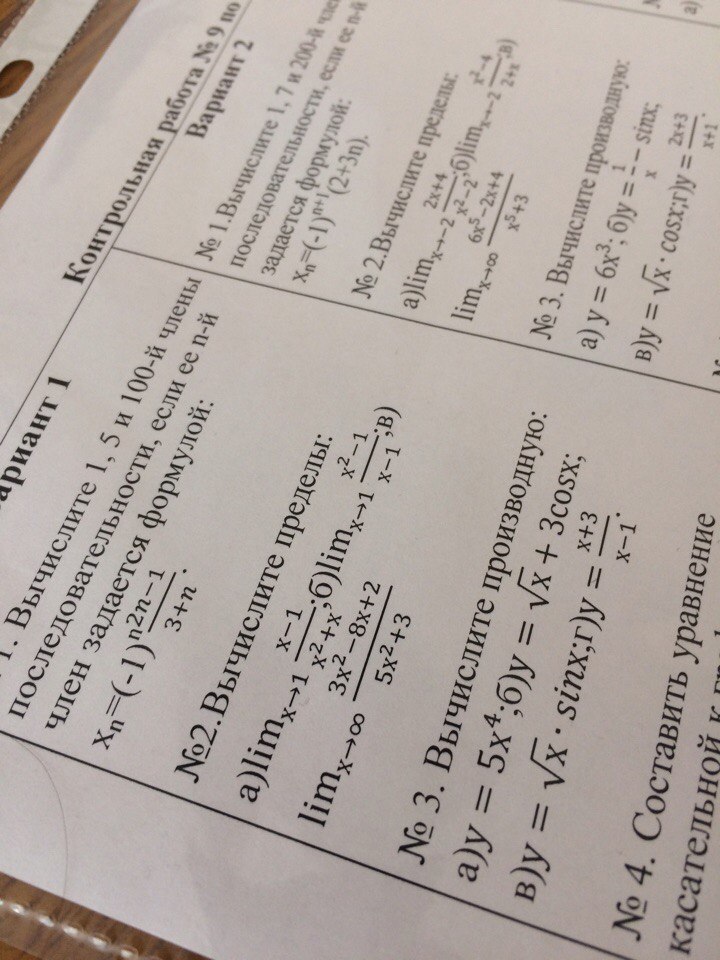 Контрольная работа № 9 по
Вариант 1
1. Вычислите 1, 5 и 100-й члены
последовательности, если ее n-й
член задается формулой:
xₙ=(-1)ⁿ (2n−1)/(3+n).
№2.Вычислите пределы:
а)lim x→1 (x−1)/(x²+x);б)lim x→1 (x²−1)/(x−1);в)
lim x→∞ (3x²−8x+2)/(5x²+3)
№ 3. Вычислите производную:
а)y = 5x⁴;б)y = √x + 3cosx;
в)y = √x · sinx;г)y = (x+3)/(x−1).
№ 4. Составить уравнение
касательной к
Вариант 2
№ 1.Вычислите 1, 7 и 200-й
последовательности, если ее n-й
задается формулой:
xₙ=(-1)ⁿ⁺¹(2+3n).
№ 2.Вычислите пределы:
а)lim x→−2 (2x+4)/(x²−2);б)lim x→−2 (x²−4)/(2+x);в)
lim x→∞ (6x⁵−2x+4)/(x⁵+3)
№ 3. Вычислите производную:
а) y = 6x³; б)y = 1/x − sinx;
в)y = √x · cosx;г)y = (2x+3)/(x+1).
а)